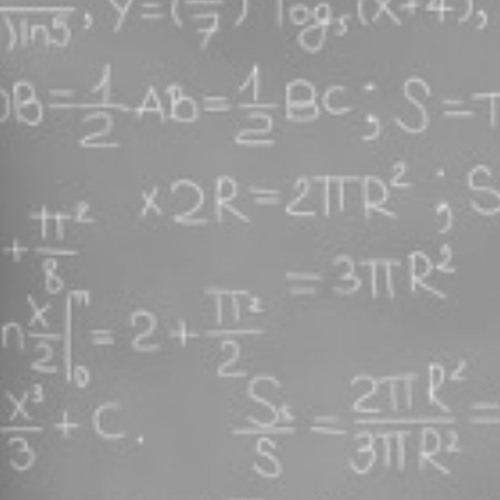 )ln5 ; y=(/7) log₅(x+4),
DB=1/2 Ab=1/2 BC; S=π
x2R=2πR²; S
+π²/8
=3πR²
n x/2 |₀^π = 2+π²/2
x³/3 + C. Sₛ/S = 2πR²/3πR² =